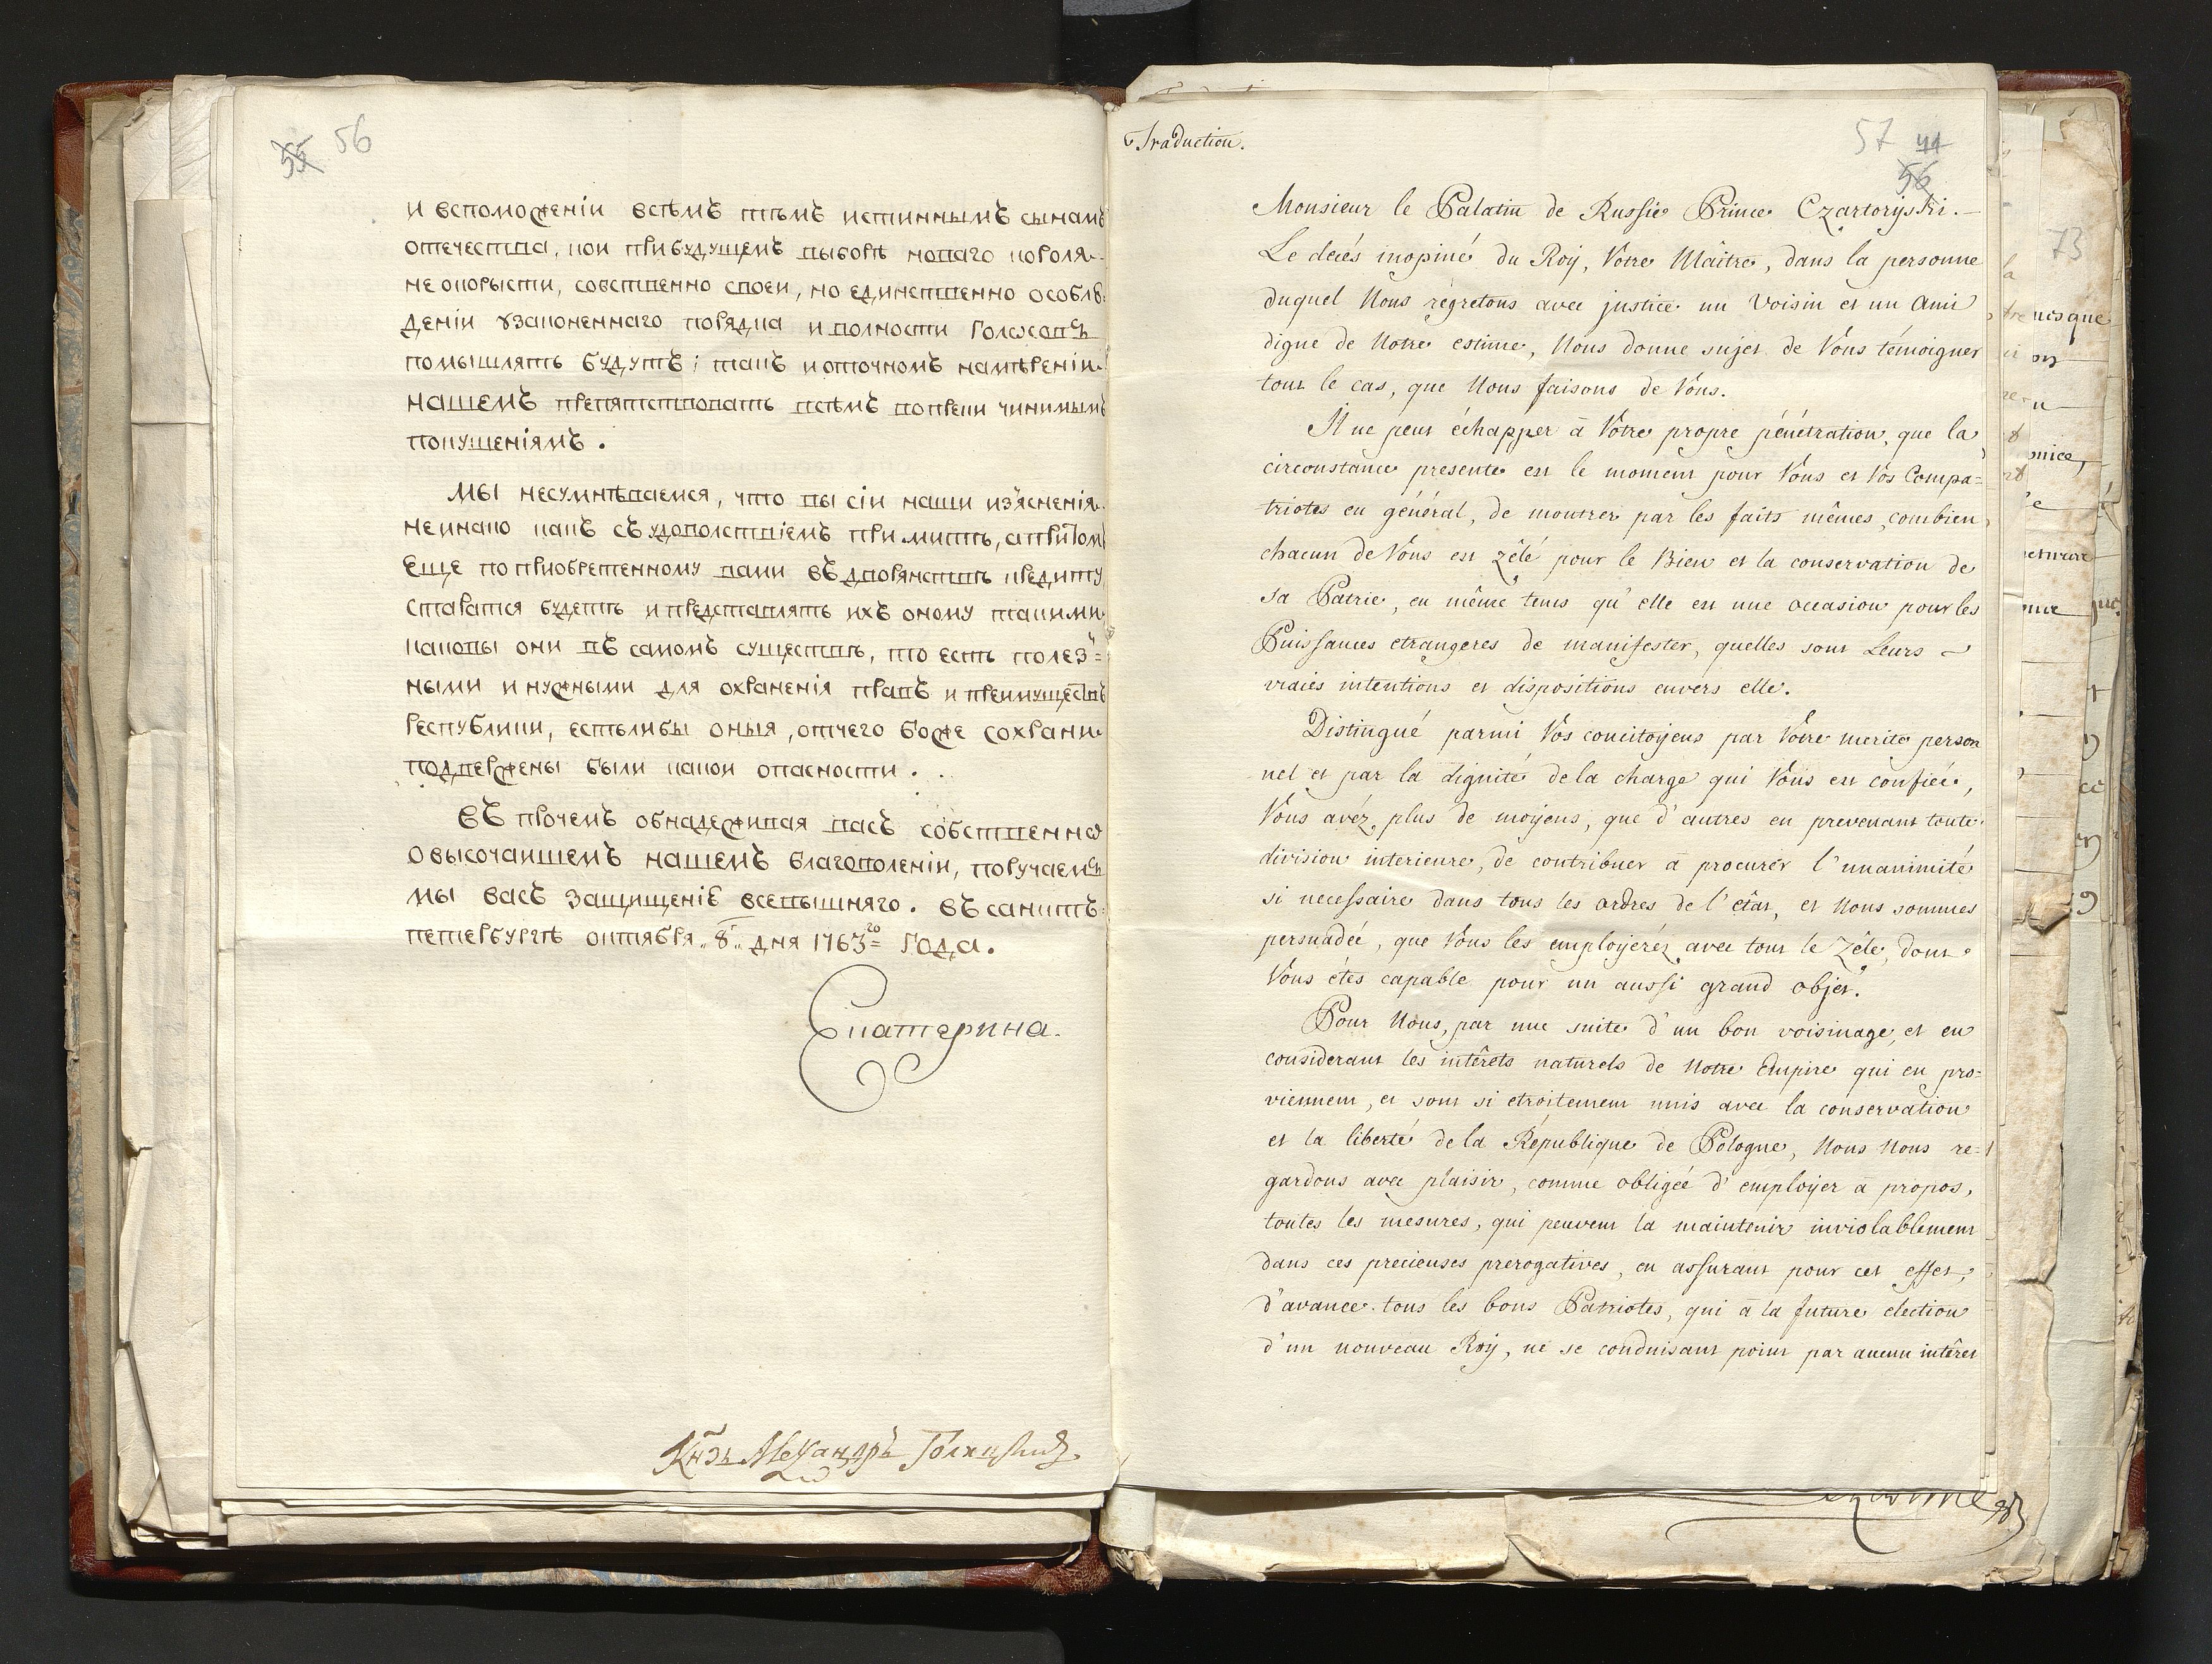 55 56
и вспоможеніи всѣмъ тѣмъ истиннымъ сынамъ
отечества, кои прибудущемъ выборѣ новаго короля
не окорысти, собственно своеи, но единственно особлю
деніи узаконеннаго порядка и волности голосовъ
помышлять будутъ; такъ и оточномъ намѣреніи
нашемъ препятствовать всѣмъ вопреки чинимымъ
покушеніямъ.
Мы несумнѣваемся, что вы сіи наши изъясненія
неинако какъ съ удоволствіемъ примите, апритомъ
еще поприобретенному вами въ дворянствѣ кредиту
старатся будете и представлять ихъ оному такими
каковы они въ самомъ существѣ, то есть полез=
ными и нужными для охраненія правъ и преимуществъ
республики, естьлибы оныя, отчего боже сохрани
подвержены были какои опасности.
Въ прочемъ обнадеживая васъ собственно
о высочаишемъ нашемъ благоволеніи, поручаемъ
мы васъ защищенію всевышняго. Въ санктъ
петербургѣ октября 8 дня 1763го года.
Екатерина.
Кнзь Александръ Голицынъ
Traduction.
57 44
56
Monsieur le Palatin de Russie Prince Czartoryski.
Le decés inopiné du Roÿ, Vôtre Maître, dans la personne
duquel Nous régretons avec justice un Voisin et un Ami
digne de Notre estime, Nous donne sujet de Vous témoigner
tout le cas, que Nous faisons de Vous.
Il ne peut échapper à Vôtre propre pénétration, que la
circonstance presente est le moment pour Vous et Vos Compa=
triotes en général, de montrer par les faits mêmes, combien
chacun de Vous est zêlé pour le Bien et la conservation de
sa Patrie, en même tems qu'elle est une occasion pour les
Puissances etrangeres de manifester, quelles sont Leurs
vraies intentions et dispositions envers elle.
Distingué parmi Vos concitoÿens par Vôtre merite person
nel et par la dignité de la charge qui Vous est confiée,
Vous avéz plus de moÿens, que d'autres en prevenant toute
division interieure, de contribuer à procurer l'unanimité
si necessaire dans tous les ordres de l'êtat, et Nous sommes
persuadée, que Vous les emploÿeréz avec tout le Zêle, dont
Vous étes capable pour un aussi grand objet.
Pour Nous, par une suite d'un bon voisinage, et en
considerant les intêrets naturels de Notre Empire qui en pro=
viennent, et sont si etroitement unis avec la conservation
et la liberté de la République de Pologne, Nous Nous re=
gardons avec plaisir, comme obligée d'emploÿer à propos,
toutes les mesures, qui peuvent la maintenir inviolablement
dans ces precieuses prerogatives, en assurant pour cet effet,
d'avance tous les bons Patriotes, qui à la future election
d'un nouveau Roÿ, ne se conduisant point par aucun intêret
73